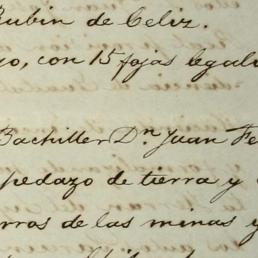 Rubin de Celiz.
go, con 15 fojas legali
Bachiller Dn Juan Fe
pedazo de tierra y
rros de las minas y